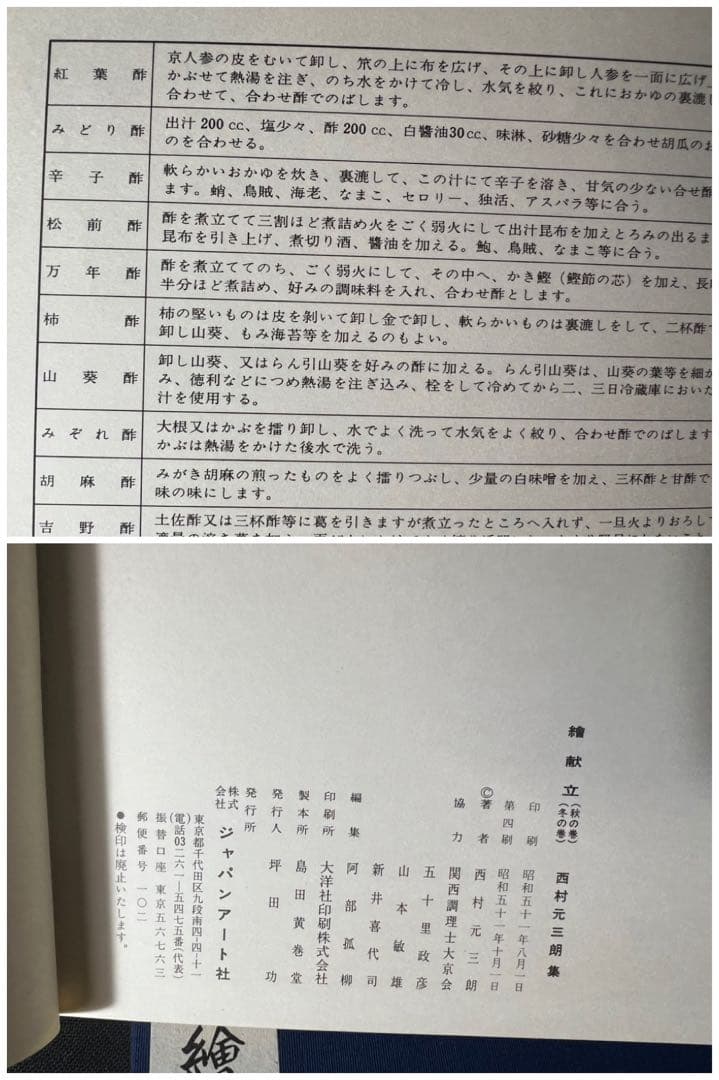 紅葉酢
京人参の皮をむいて卸し、笊の上に布を広げ、その上に卸し人参を一面に広げ、
かぶせて熱湯を注ぎ、のち水をかけて冷し、水気を絞り、これにおかゆの裏漉し
合わせて、合わせ酢でのばします。
みどり酢
出汁200cc、塩少々、酢200cc、白醬油30cc、味淋、砂糖少々を合わせ胡瓜のお
のを合わせる。
辛子酢
軟らかいおかゆを炊き、裏漉して、この汁にて辛子を溶き、甘気の少ない合せ酢
ます。蛸、烏賊、海老、なまこ、セロリー、独活、アスパラ等に合う。
松前酢
酢を煮立てて三割ほど煮詰め火をごく弱火にして出汁昆布を加えとろみの出るま
昆布を引き上げ、煮切り酒、醬油を加える。鮑、烏賊、なまこ等に合う。
万年酢
酢を煮立ててのち、ごく弱火にして、その中へ、かき鰹（鰹節の芯）を加え、長
半分ほど煮詰め、好みの調味料を入れ、合わせ酢とします。
柿酢
柿の堅いものは皮を剝いて卸し金で卸し、軟らかいものは裏漉しをして、二杯酢
卸し山葵、もみ海苔等を加えるのもよい。
山葵酢
卸し山葵、又はらん引山葵を好みの酢に加える。らん引山葵は、山葵の葉等を細か
み、徳利などにつめ熱湯を注ぎ込み、栓をして冷めてから二、三日冷蔵庫においた
汁を使用する。
みぞれ酢
大根又はかぶを擂り卸し、水でよく洗って水気をよく絞り、合わせ酢でのばします
かぶは熱湯をかけた後水で洗う。
胡麻酢
みがき胡麻の煎ったものをよく擂りつぶし、少量の白味噌を加え、三杯酢と甘酢で
味の味にします。
吉野酢
土佐酢又は三杯酢等に葛を引きますが煮立ったところへ入れず、一旦火よりおろして
繪献立（秋の巻）（冬の巻） 西村元三朗集
印刷 昭和五十一年八月一日
第四刷 昭和五十一年十月一日
©著者 西村元三朗
協力 関西調理士大京会
五十里政彦
山本敏雄
新井喜代司
編集 阿部孤柳
印刷所 大洋社印刷株式会社
製本所 島田黄巻堂
発行人 坪田功
発行所
株式会社 ジャパンアート社
東京都千代田区九段南四-四-十一
(電話03二六一―五四七五番(代表)
振替口座 東京五六七六三
郵便番号 一〇二
●検印は廃止いたします。
繪